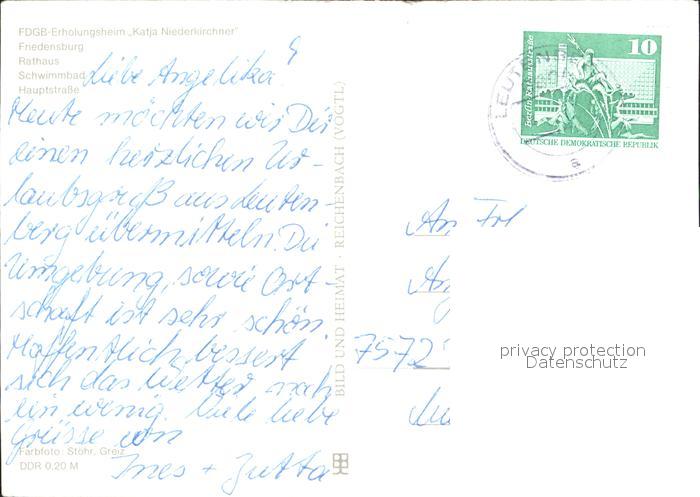 FDGB-Erholungsheim „Katja Niederkirchner"
Friedensburg
Rathaus
Schwimmbad
Hauptstraße
Liebe Angelika!
Heute möchten wir Dir
einen herzlichen Ur-
laubsgruß aus Leuten-
berg übermitteln. Die
Umgebung, sowie Ort-
schaft ist sehr schön.
Hoffentlich bessert
sich das Wetter noch
ein wenig. Viele liebe
Grüsse von
Ines + Jutta
Farbfoto: Stöhr, Greiz
DDR 0,20 M
BILD UND HEIMAT · REICHENBACH (VOGTL)
LEUTEN
a
10
Berlin Rathausstraße
DEUTSCHE DEMOKRATISCHE REPUBLIK
An Frl
An
7572
privacy protection
Datenschutz